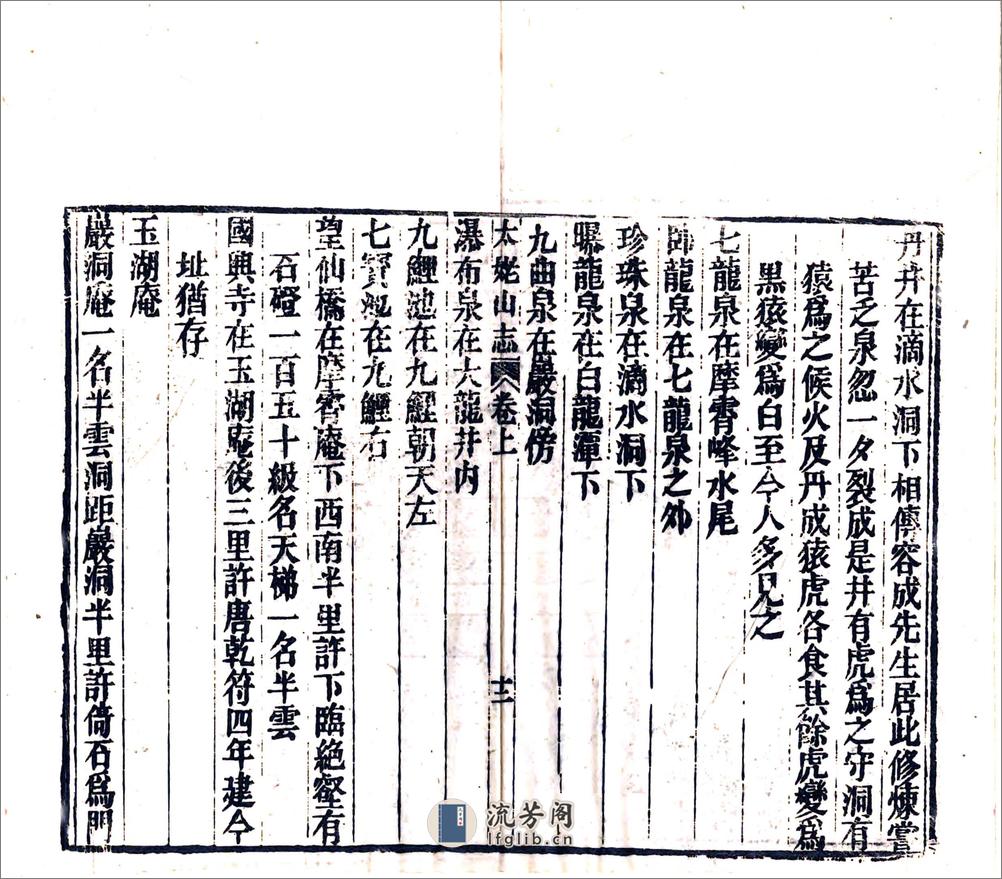 丹井在滴水洞下相傳容成先生居此修煉嘗
苦乏泉忽一夕裂成是井有虎爲之守洞有
猿爲之候火及丹成猿虎各食其餘虎變爲
黑猿變爲白至今人多見之
七龍泉在摩霄峰水尾
龍泉在七龍泉之外
珍珠泉在滴水洞下
曝龍泉在白龍潭下
九曲泉在巖洞傍
太姥山志 卷上 十二
瀑布泉在大龍井内
九鯉池在九鯉朝天左
七寶池在九鯉右
望仙橋在摩霄庵下西南半里許下臨絶壑有
石磴一百五十級名天梯一名半雲
國興寺在玉湖庵後三里許唐乾符四年建今
址猶存
玉湖庵
巖洞庵一名半雲洞距巖洞半里許倚石爲門
流芳阁
lfglib.cn